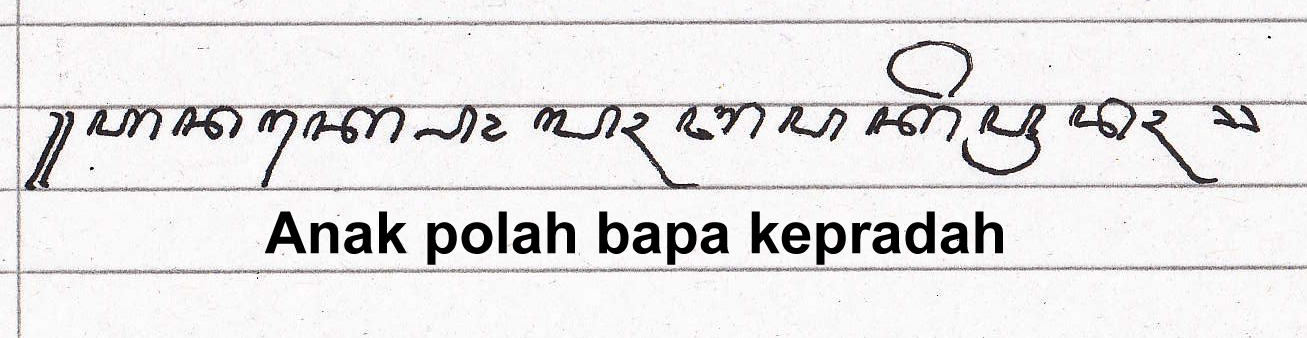 ꧋ꦲꦤꦏ꧀ꦥꦺꦴꦭꦃꦧꦥꦏꦼꦥꦿꦢꦃ꧉
Anak polah bapa kepradah